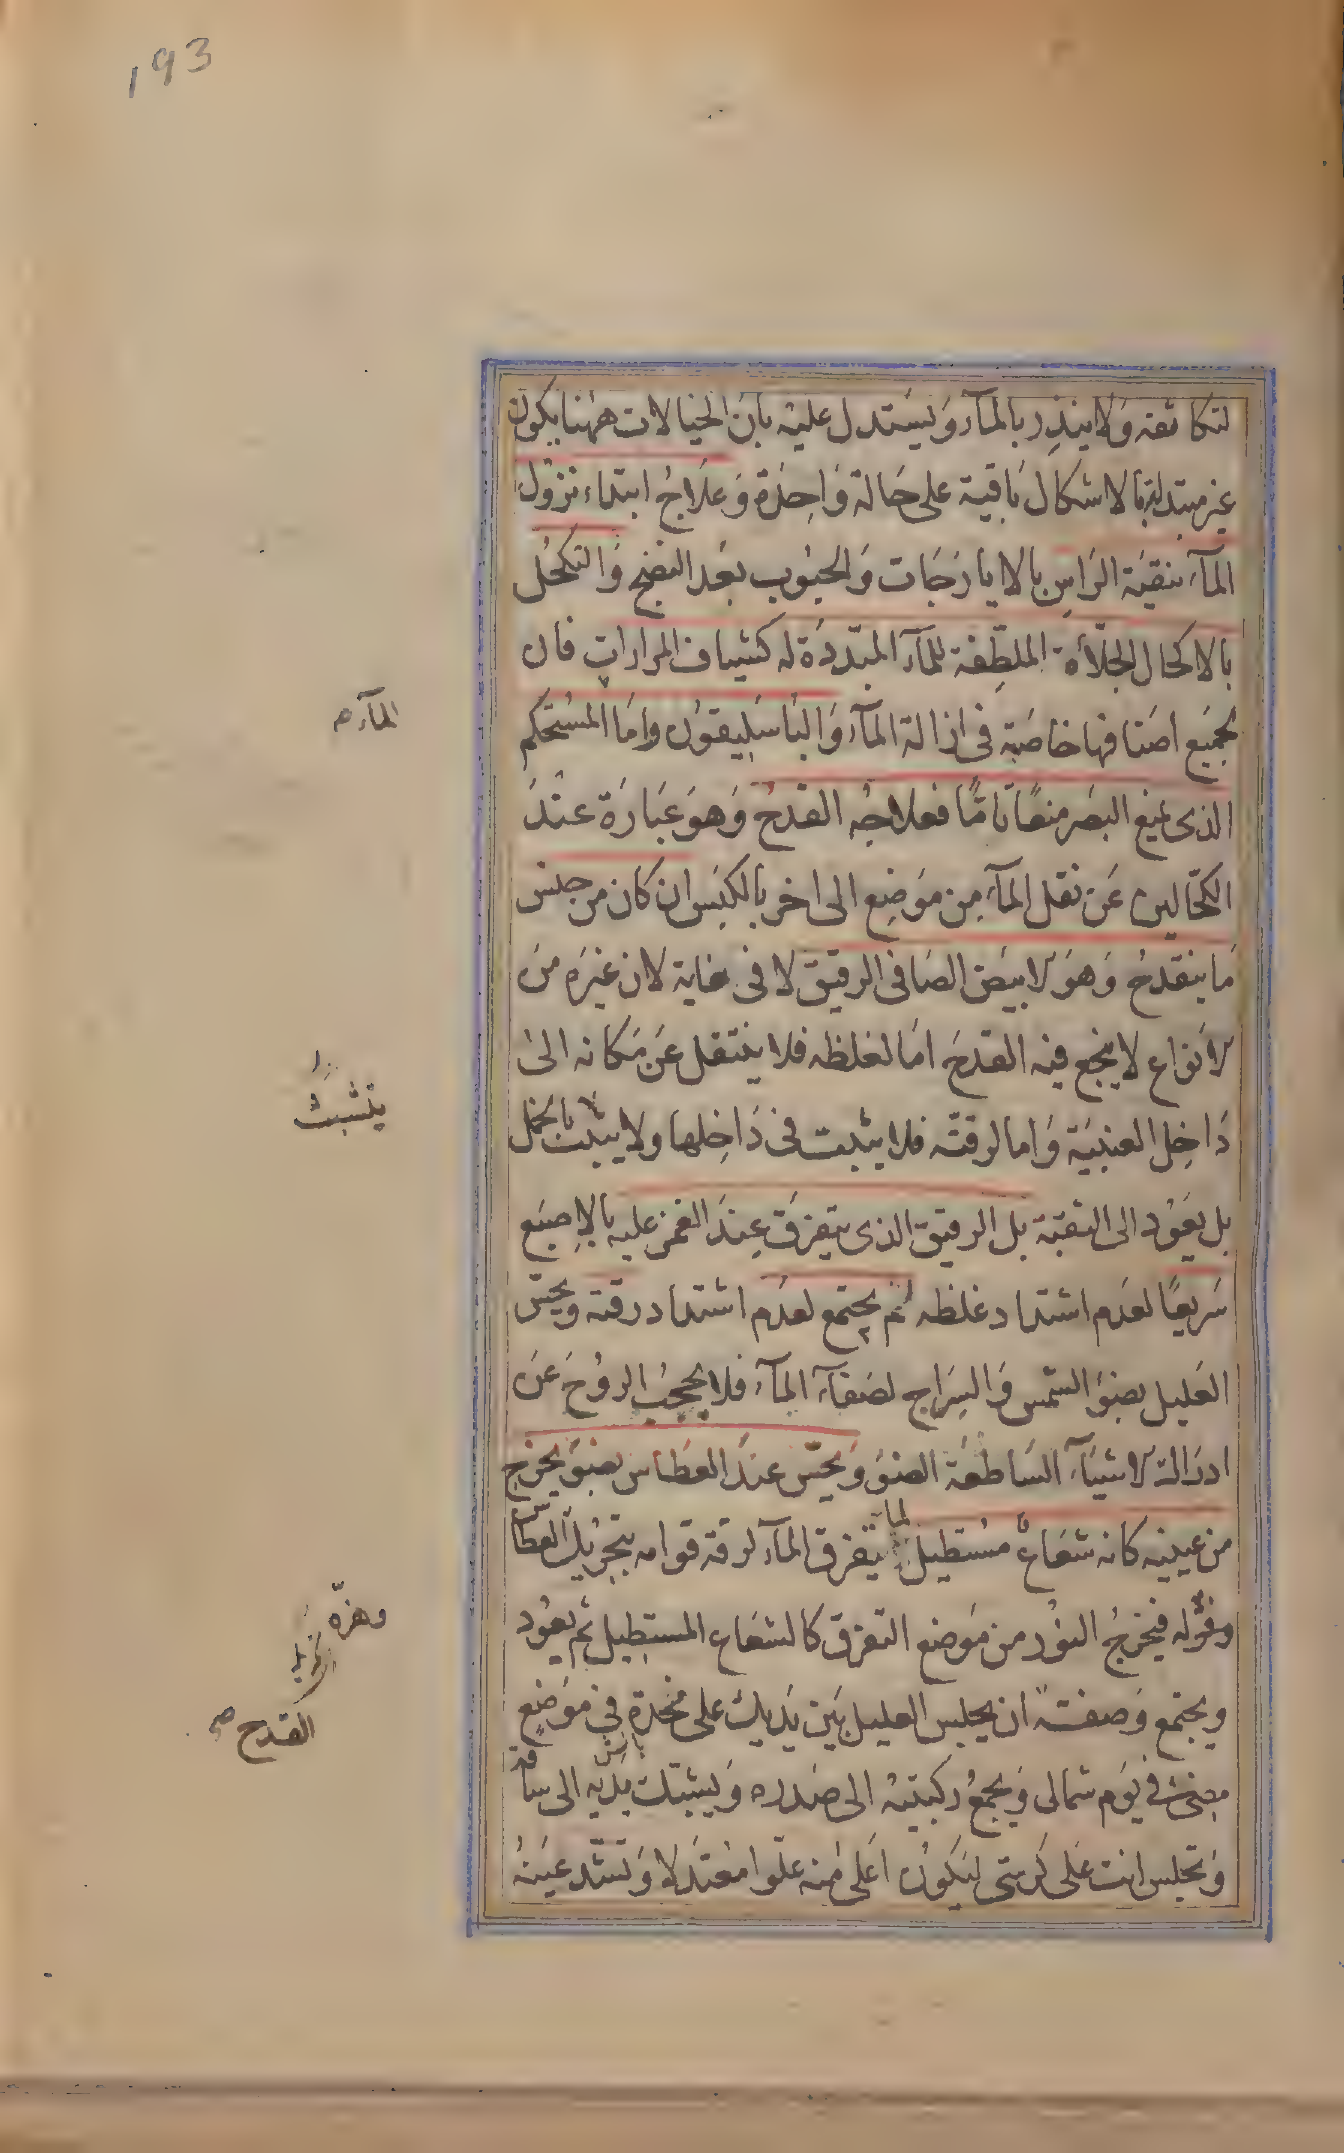 193
لتكاثفه وَلا ينذِر بالمآء وَيسَتدل عليْه بانَ الخيالات ههُنا يكون
غير مبتدلة بالاشكال بَاقية على حَالة وَاحِدَة وَعلَاجُ ابتداء نزوُل
المآء بتنقيَة الرَاسِ بالايارَجَات وَالحبُوب بعَد النضج وَالتكحُل
بالاكحال الجلّاءة الملطِّفة للمآء المبَدّدَة له كشياف المرارات فان
لجمَيع اصَنافها خاصَيّة فى ازالة المآء وَالباسَلِيقوُن وامَا المسُتحكم
المآء صح
الذى يمنع البصَر منعًا تامًّا فعلاجُه القَدحُ وَهوَ عبَارَة عنْدَ
الكحّالين عَن نقل المآء مِن موَضِع الى اخر بالكبَس ان كان من جنس
مَا ينقدحُ وَهوَ الابيَض الصَافى الرقيق لا فى غاية لان غيَره منَ
الانوَاع لا ينجع فيه القدحَ امَا لغلظه فلا ينتقل عَن مَكانه الىٰ
دَاخِل العنبيَة وَاما لرقتّه فلا يثبت فى دَاخِلها ولا يتثبت بالخمل
يتشبث
بل يعَوُد الى الثقبَة بل الرقيق الذى يتفرَق عِندَ الغمز عليه بالاِصبَع
سَريعًا لعدَم اشتداد غلظه ثم يجتمع لعدَم اشتداد رقته ويحِسّ
العَليل بضوَء الشمس وَالسِرَاج لصَفآء المآء فلا يحجبُ الروُحَ عَن
ادرَاك الاشيآء السَاطعَة الضوَء وَيحسّ عندَ العطاس بضوَء يخرج
من عينيه كانه شعَاعٌ مسُتطيل لما يتفرق المآء لرقة قوامه بتحرُيك العطاس
وهزّه
وقوّله فيخرجُ النوُر من موَضع التفرق كالشعَاع المستطِيل ثم يعَوُد
ويجتمع وَصفته ان يجلس العليل بيَن يَديك على مخدّة فى موَضع
القدح صح
مضئ فى يوَم شمالى وَيجمعُ ركبتيْه الى صَدره وَيشبّك يدَيه الى ساقه
وَتجلس انت عَلى كرسَى ليَكوُن اعَلى منه علوّا معُتدَلا وَتشّد عيَنهُ